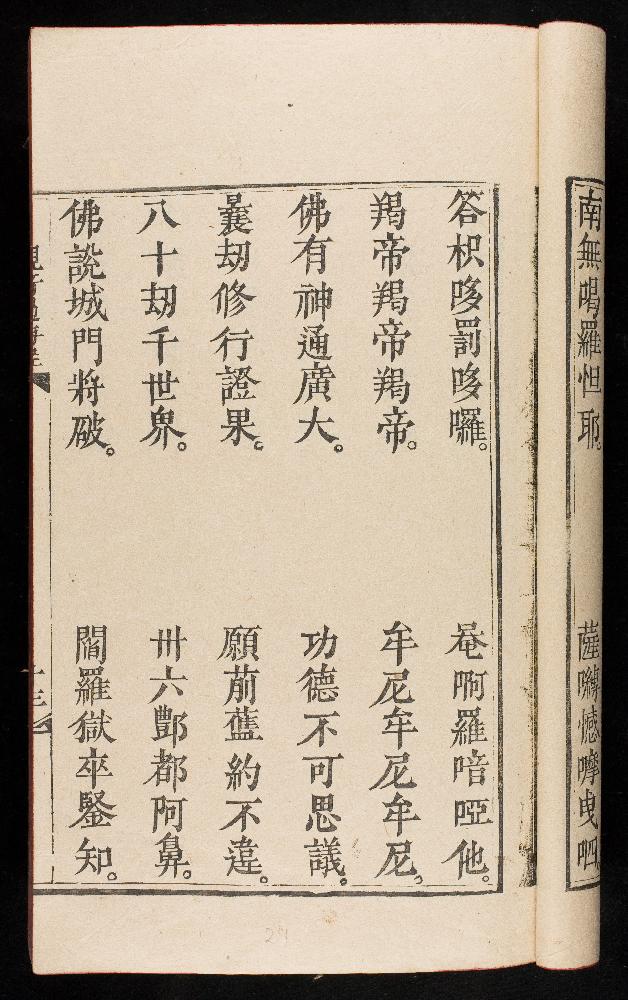 南無喝羅怛耶。 薩嚩憾嚤曳呬
答枳哆罰哆囉。 菴啊羅喑啞他。
羯帝羯帝羯帝。 牟尼牟尼牟尼。
佛有神通廣大。 功德不可思議。
曩刧修行證果。 願前舊約不違。
八十刧千世界。 卅六酆都阿鼻。
佛説城門將破。 閻羅獄卒鑒知。
29